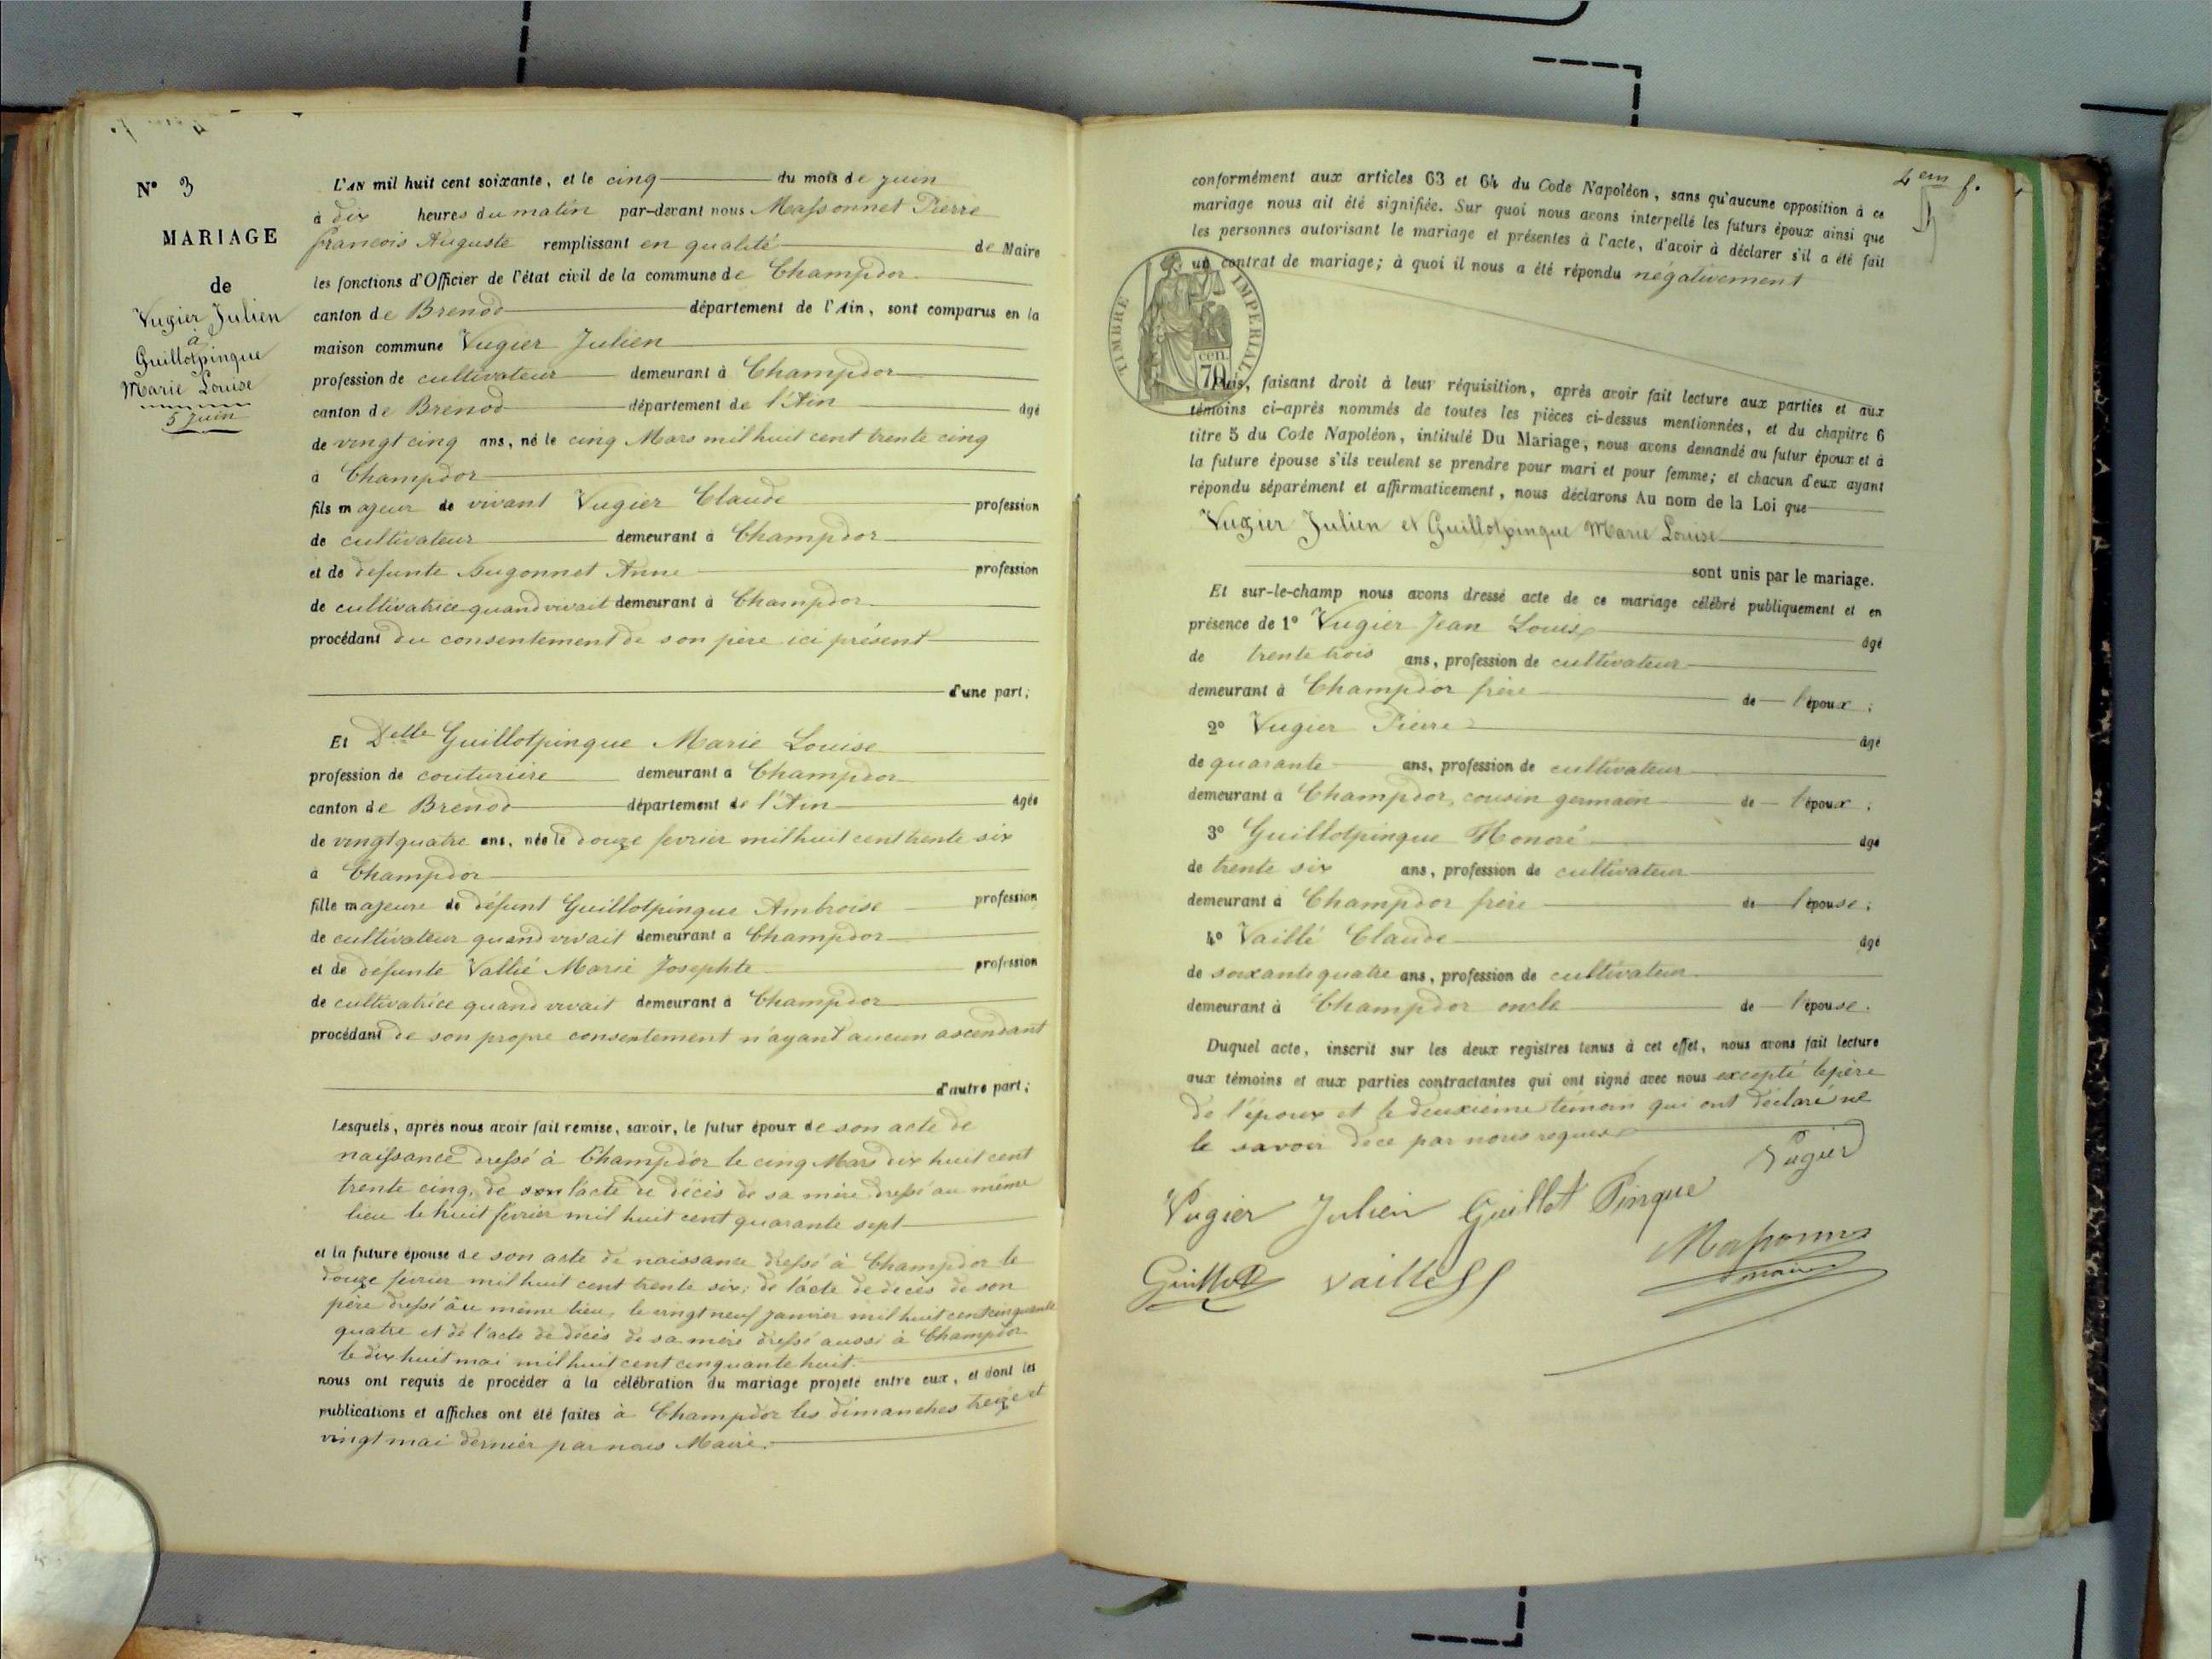 N° 3
MARIAGE
de
Vugier Julien
à
Guillotpinque
Marie Louise
5 juin
L'AN mil huit cent soixante, et le cinq du mois de juin
à dix heures du matin par-devant nous Massonnet Pierre
francois Auguste remplissant en qualité de Maire
les fonctions d'Officier de l'état civil de la commune de Champdor
canton de Brenod département de l'Ain, sont comparus en la
maison commune Vugier Julien
profession de cultivateur demeurant à Champdor
canton de Brenod département de l'Ain âgé
de vingt cinq ans, né le cinq Mars mil huit cent trente cinq
à Champdor
fils majeur de vivant Vugier Claude profession
de cultivateur demeurant à Champdor
et de defunte Anne profession
de cultivatrice quand vivait demeurant à Champdor
procédant du consentement de son père ici présent
d'une part;
Et Delle Guillotpinque Marie Louise
profession de couturière demeurant à Champdor
canton de Brenod département de l'Ain âgée
de vingt quatre ans, née le douze fevrier mil huit cent trente six
à Champdor
fille majeure de défunt Guillotpinque Ambroise profession
de cultivateur quand vivait demeurant à Champdor
et de défunte Vallié Marie Josephte profession
de cultivatrice quand vivait demeurant à Champdor
procédant de son propre consentement n'ayant aucun ascendant
d'autre part;
Lesquels, après nous avoir fait remise, savoir, le futur époux de son acte de
naissance dressé à Champdor le cinq Mars dix huit cent
trente cinq, de l'acte de décès de sa mère dressé au même
lieu le huit fevrier mil huit cent quarante sept
et la future épouse de son acte de naissance dressé à Champdor le
douze fevrier mil huit cent trente six; de l'acte de décès de son
père dressé au même lieu, le vingt neuf janvier mil huit cent cinquante
quatre et de l'acte de décès de sa mère dressé aussi à Champdor
le dix huit mai mil huit cent cinquante huit.
nous ont requis de procéder à la célébration du mariage projeté entre eux, et dont les
publications et affiches ont été faites à Champdor les dimanches treize et
vingt mai dernier par nous Maire.
4em f.
conformément aux articles 63 et 64 du Code Napoléon, sans qu'aucune opposition à ce
mariage nous ait été signifiée. Sur quoi nous avons interpellé les futurs époux ainsi que
les personnes autorisant le mariage et présentes à l'acte, d'avoir à déclarer s'il a été fait
un contrat de mariage; à quoi il nous a été répondu négativement
TIMBRE IMPERIAL
cen.
70
Puis, faisant droit à leur réquisition, après avoir fait lecture aux parties et aux
témoins ci-après nommés de toutes les pièces ci-dessus mentionnées, et du chapitre 6
titre 5 du Code Napoléon, intitulé Du Mariage, nous avons demandé au futur époux et à
la future épouse s'ils veulent se prendre pour mari et pour femme; et chacun d'eux ayant
répondu séparément et affirmativement, nous déclarons Au nom de la Loi que
Vugier Julien et Guillotpinque Marie Louise
sont unis par le mariage.
Et sur-le-champ nous avons dressé acte de ce mariage célébré publiquement et en
présence de 1° Vugier Jean Louis âgé
de trente trois ans, profession de cultivateur
demeurant à Champdor frère de l'époux;
2° Vugier Pierre âgé
de quarante ans, profession de cultivateur
demeurant à Champdor, cousin germain de l'époux;
3° Guillotpinque Honoré âgé
de trente six ans, profession de cultivateur
demeurant à Champdor frère de l'épouse;
4° Vaillé Claude âgé
de soixante quatre ans, profession de cultivateur
demeurant à Champdor oncle de l'épouse.
Duquel acte, inscrit sur les deux registres tenus à cet effet, nous avons fait lecture
aux témoins et aux parties contractantes qui ont signé avec nous excepté le père
de l'époux et le deuxième témoin qui ont déclaré ne
le savoir de ce par nous requis
Vugier
Vugier Julien Guillot Pinque
Massonnet
maire
Guillot vaille